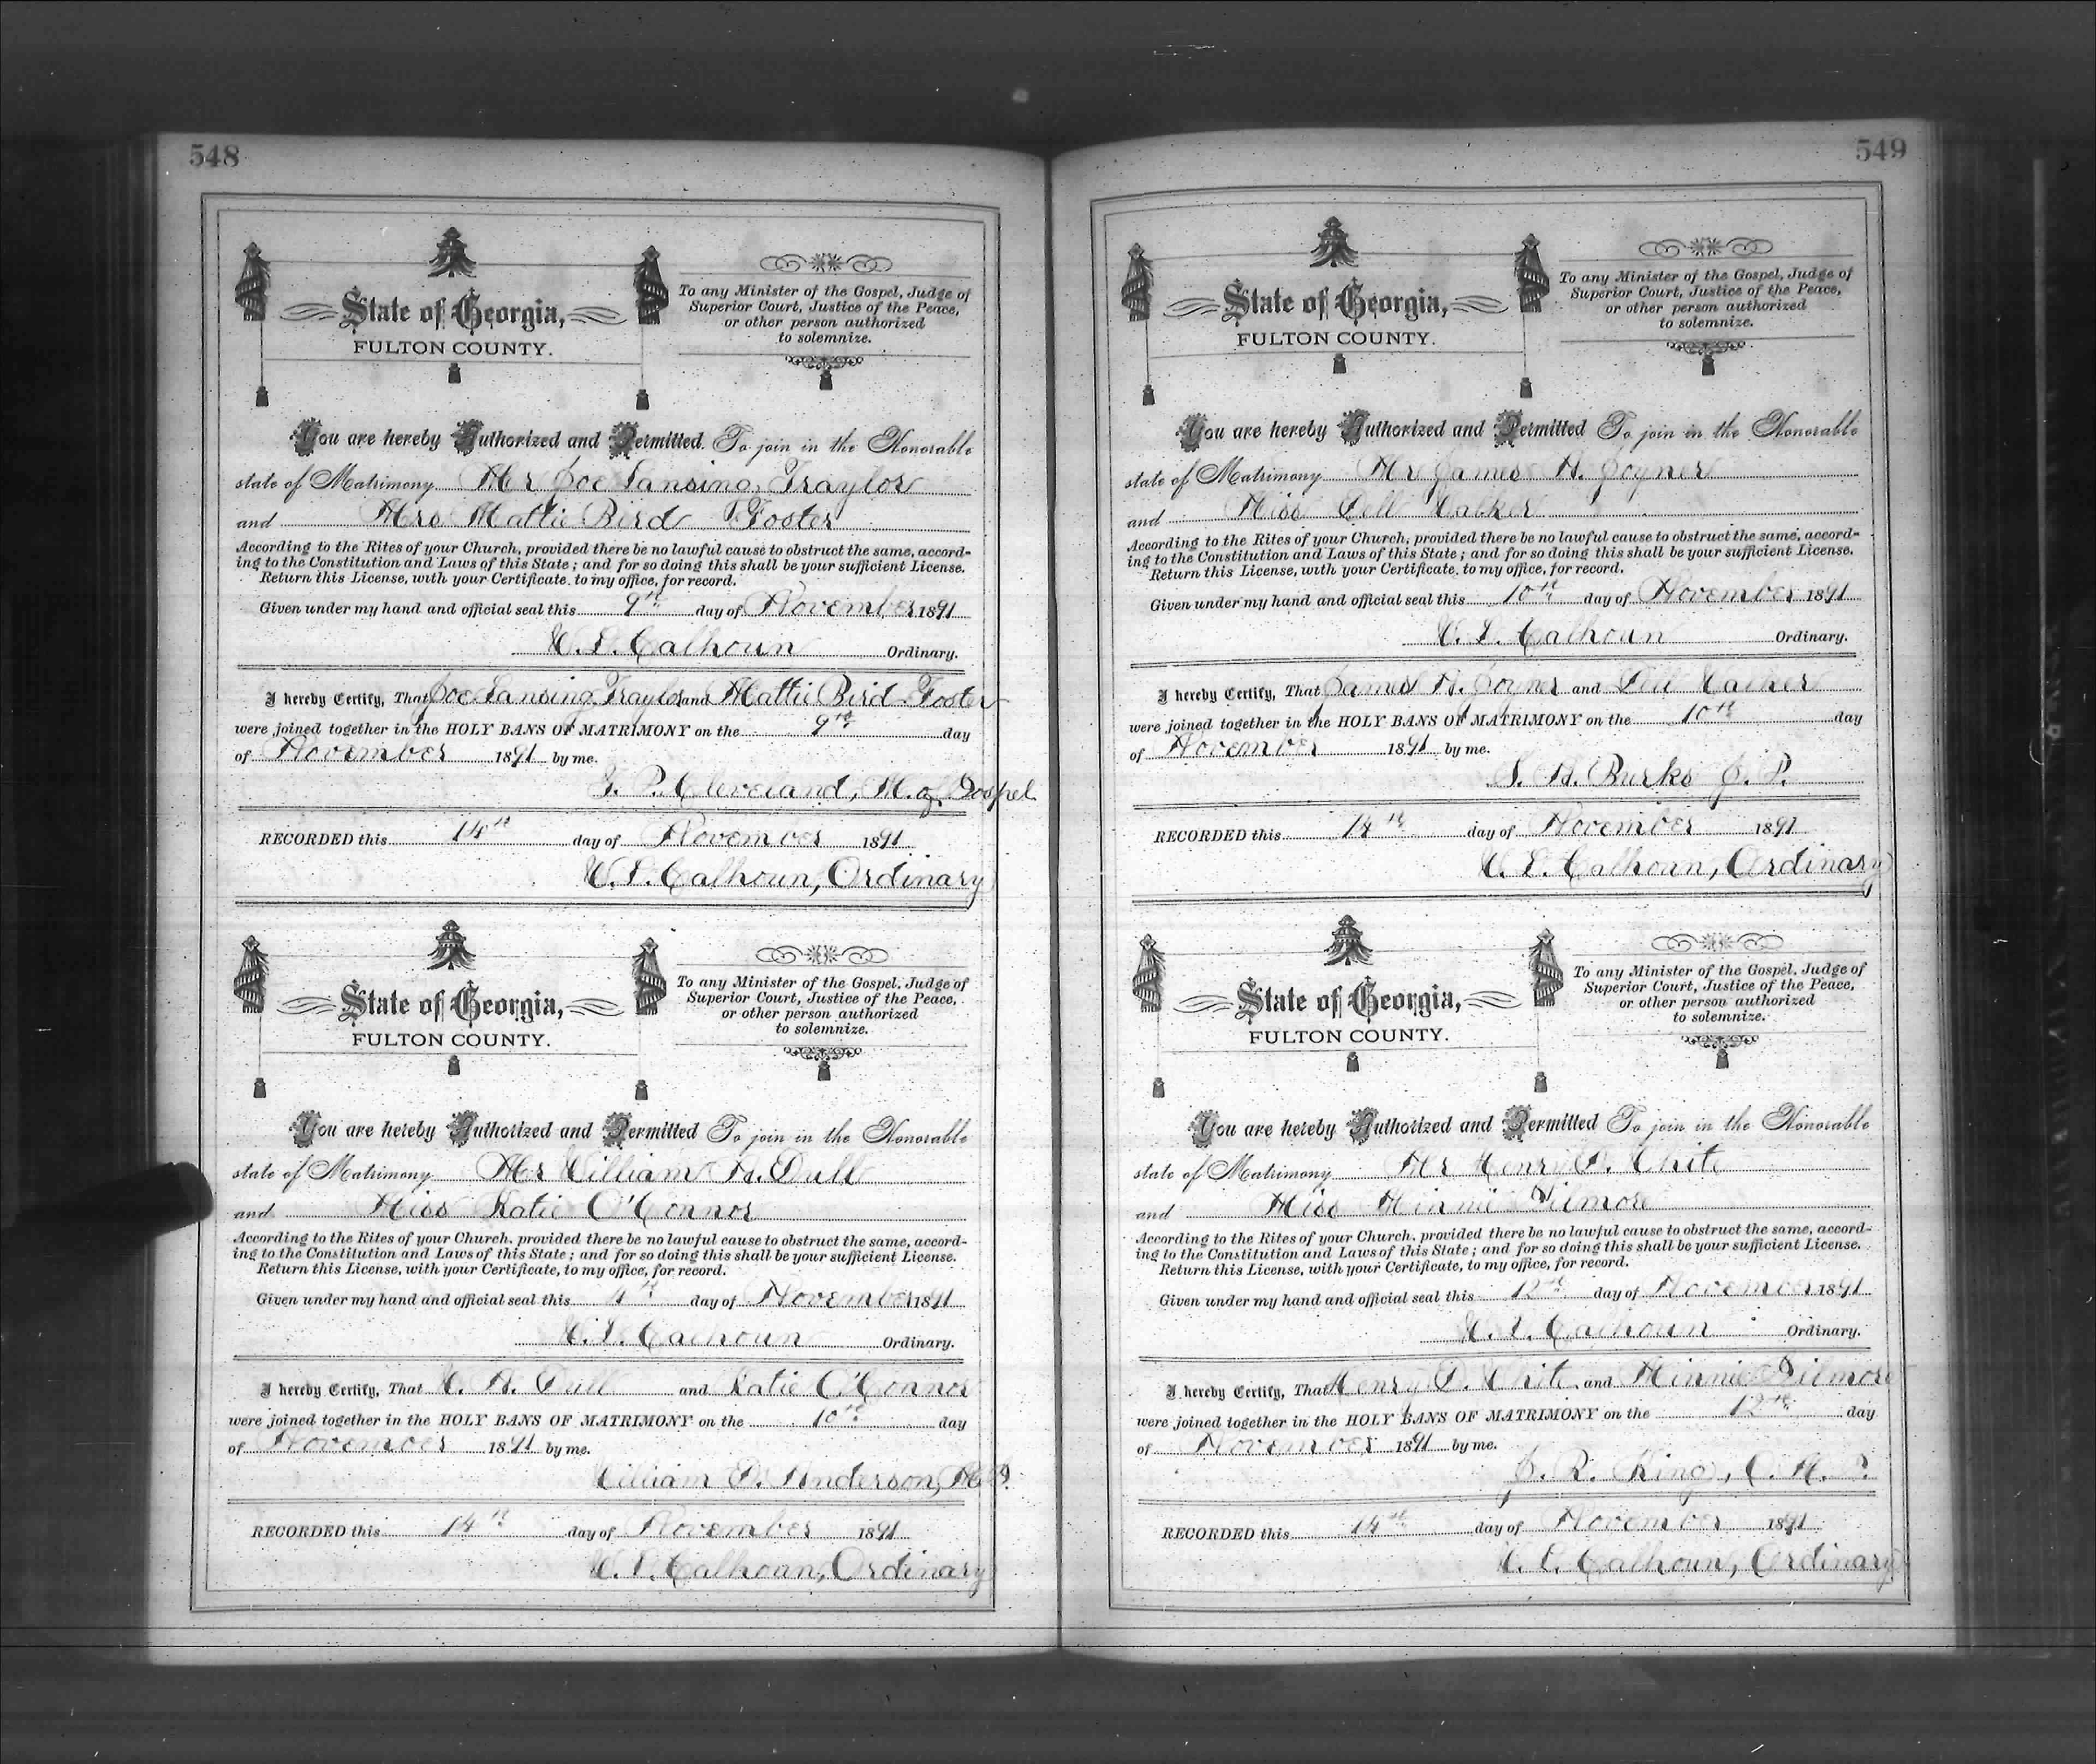 548
State of Georgia,
FULTON COUNTY.
To any Minister of the Gospel, Judge of
Superior Court, Justice of the Peace,
or other person authorized
to solemnize.
You are hereby Authorized and Permitted. To join in the Honorable
state of Matrimony Mr Joe Lansing Traylor
and Mrs Mattie Bird Foster
According to the Rites of your Church, provided there be no lawful cause to obstruct the same, accord-
ing to the Constitution and Laws of this State; and for so doing this shall be your sufficient License.
Return this License, with your Certificate, to my office, for record.
Given under my hand and official seal this 9th day of November 1891
W. L. Calhoun Ordinary.
I hereby Certify, That Joe Lansing Traylor and Mattie Bird Foster
were joined together in the HOLY BANS OF MATRIMONY on the 9th day
of November 1891 by me.
P. Cleveland, M. of Gospel
RECORDED this 14th day of November 1891
W. L. Calhoun, Ordinary
State of Georgia,
FULTON COUNTY.
To any Minister of the Gospel, Judge of
Superior Court, Justice of the Peace,
or other person authorized
to solemnize.
You are hereby Authorized and Permitted To join in the Honorable
state of Matrimony Mr William H. Dull
and Miss Katie O'Connor
According to the Rites of your Church, provided there be no lawful cause to obstruct the same, accord-
ing to the Constitution and Laws of this State; and for so doing this shall be your sufficient License.
Return this License, with your Certificate, to my office, for record.
Given under my hand and official seal this day of November 1891
W. L. Calhoun Ordinary.
I hereby Certify, That W. H. Dull and Katie O'Connor
were joined together in the HOLY BANS OF MATRIMONY on the 10th day
of November 1891 by me.
William D. Anderson,
RECORDED this 14th day of November 1891
W. L. Calhoun, Ordinary
549
State of Georgia,
FULTON COUNTY.
To any Minister of the Gospel, Judge of
Superior Court, Justice of the Peace,
or other person authorized
to solemnize.
You are hereby Authorized and Permitted To join in the Honorable
state of Matrimony Mr James H. Joyner
and Miss Dell Walker
According to the Rites of your Church, provided there be no lawful cause to obstruct the same, accord-
ing to the Constitution and Laws of this State; and for so doing this shall be your sufficient License.
Return this License, with your Certificate, to my office, for record.
Given under my hand and official seal this 10th day of November 1891
W. L. Calhoun Ordinary.
I hereby Certify, That James H. Joyner and Dell Walker
were joined together in the HOLY BANS OF MATRIMONY on the 10th day
of November 1891 by me.
S. H. Burks J. P.
RECORDED this 14th day of November 1891
W. L. Calhoun, Ordinary
State of Georgia,
FULTON COUNTY.
To any Minister of the Gospel, Judge of
Superior Court, Justice of the Peace,
or other person authorized
to solemnize.
You are hereby Authorized and Permitted To join in the Honorable
state of Matrimony Mr Henry P. White
and Miss Minnie Gilmore
According to the Rites of your Church, provided there be no lawful cause to obstruct the same, accord-
ing to the Constitution and Laws of this State; and for so doing this shall be your sufficient License.
Return this License, with your Certificate, to my office, for record.
Given under my hand and official seal this 12th day of November 1891
W. L. Calhoun Ordinary.
I hereby Certify, That Henry P. White and Minnie Gilmore
were joined together in the HOLY BANS OF MATRIMONY on the 12th day
of November 1891 by me.
J. R. King,
RECORDED this 14th day of November 1891
W. L. Calhoun, Ordinary